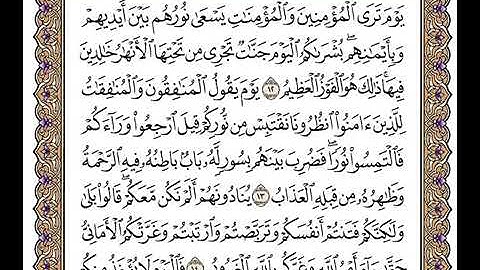 يَوْمَ تَرَى الْمُؤْمِنِينَ وَالْمُؤْمِنَاتِ يَسْعَىٰ نُورُهُم بَيْنَ أَيْدِيهِمْ
وَبِأَيْمَانِهِم بُشْرَاكُمُ الْيَوْمَ جَنَّاتٌ تَجْرِي مِن تَحْتِهَا الْأَنْهَارُ خَالِدِينَ
فِيهَا ۚ ذَٰلِكَ هُوَ الْفَوْزُ الْعَظِيمُ ۝١٢ يَوْمَ يَقُولُ الْمُنَافِقُونَ وَالْمُنَافِقَاتُ
لِلَّذِينَ ءَامَنُوا انظُرُونَا نَقْتَبِسْ مِن نُّورِكُمْ قِيلَ ارْجِعُوا وَرَاءَكُمْ
فَالْتَمِسُوا نُورًا فَضُرِبَ بَيْنَهُم بِسُورٍ لَّهُ بَابٌ بَاطِنُهُ فِيهِ الرَّحْمَةُ
وَظَاهِرُهُ مِن قِبَلِهِ الْعَذَابُ ۝١٣ يُنَادُونَهُمْ أَلَمْ نَكُن مَّعَكُمْ ۖ قَالُوا بَلَىٰ
وَلَٰكِنَّكُمْ فَتَنتُمْ أَنفُسَكُمْ وَتَرَبَّصْتُمْ وَارْتَبْتُمْ وَغَرَّتْكُمُ الْأَمَانِيُّ
حَتَّىٰ جَاءَ أَمْرُ اللَّهِ وَغَرَّكُم بِاللَّهِ الْغَرُورُ